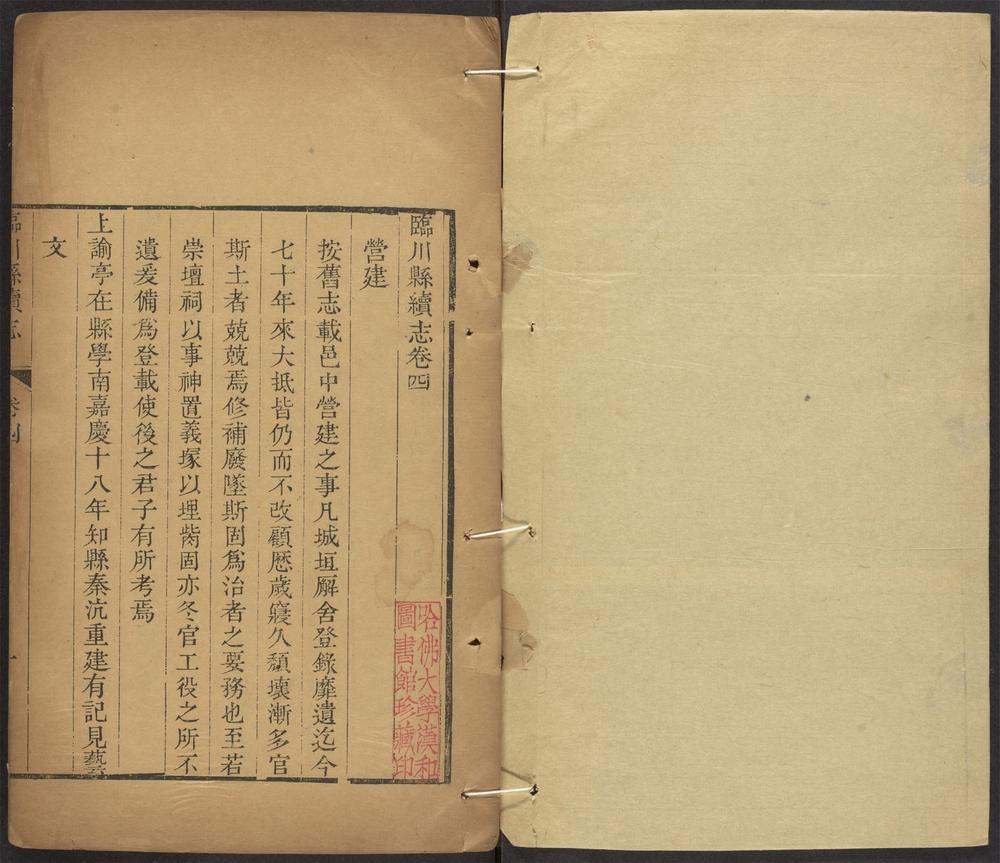 臨川縣續志卷四
哈佛大學漢和
圖書館珍藏印
營建
按舊志載邑中營建之事凡城垣廨舍登錄靡遺迄今
七十年來大抵皆仍而不改顧歷歲寖久頹壞漸多官
斯土者兢兢焉修補廢墜斯固爲治者之要務也至若
崇壇祠以事神置義塚以埋胔固亦冬官工役之所不
遺爰備爲登載使後之君子有所考焉
上諭亭在縣學南嘉慶十八年知縣秦沆重建有記見藝
文
臨川縣續志
卷四
一